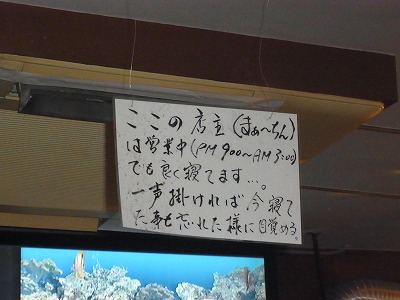 ここの店主(まぁ〜ちん)
は営業中(PM9:00〜AM3:00)
でも良く寝てます…。
一声掛ければ今寝て
た事も忘れた様に目覚める。